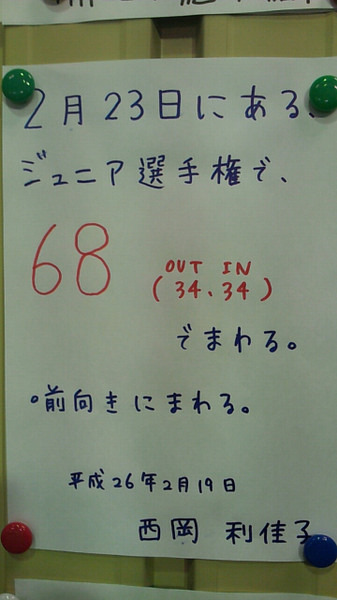 2月23日にある、
ジュニア選手権で、
68
OUT IN
(34、34)
でまわる。
。前向きにまわる。
平成26年2月19日
西岡 利佳子